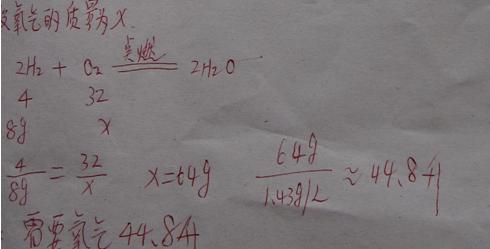 氧气的质量为X.
2H₂ + O₂ 点燃 2H₂O
4 32
8g X
4/8g = 32/X X=64g 64g/1.43g/L ≈ 44.8升
需要氧气 44.8升